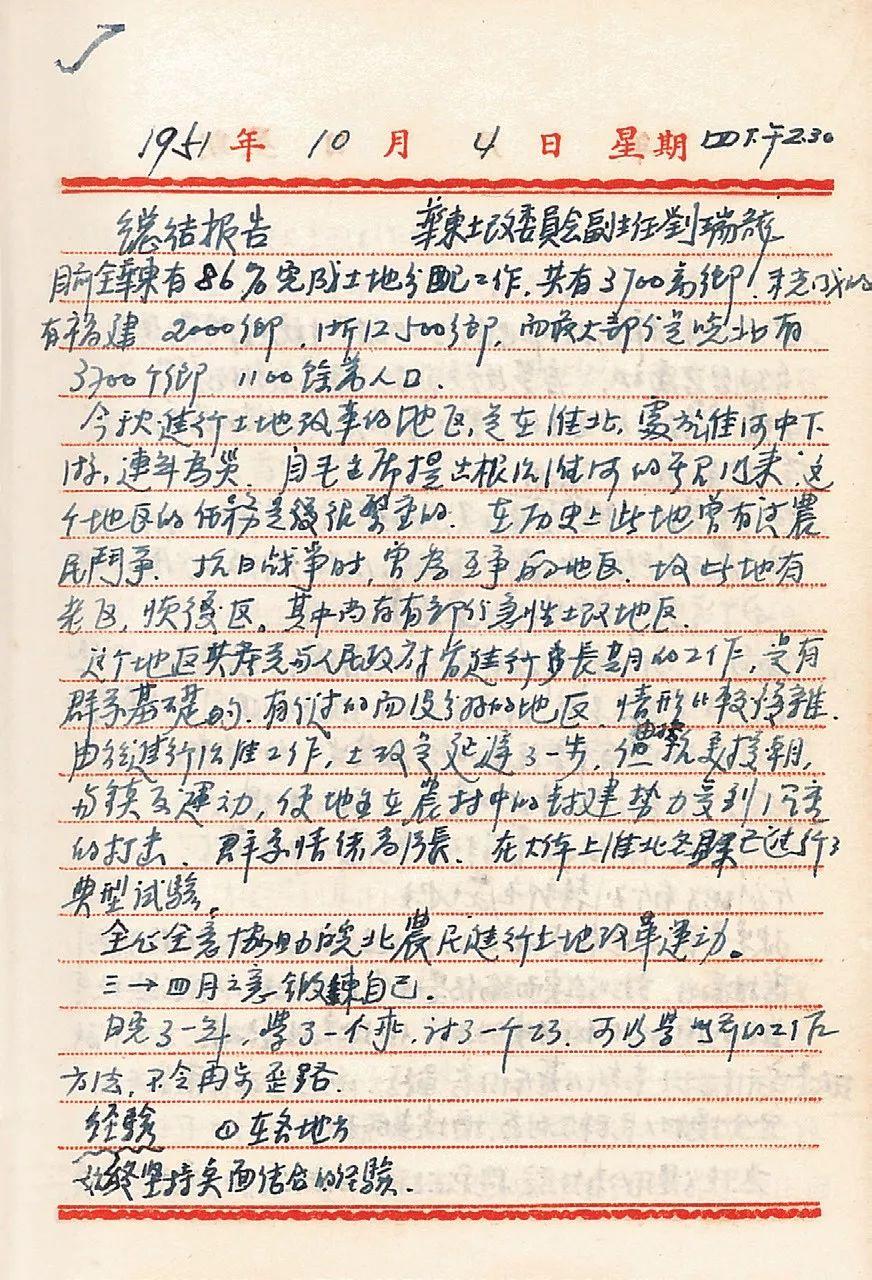 1951年 10月 4日 星期四下午2.30
总结报告 華東土改委員会副主任劉瑞龙
目前全華東有86%完成土地分配工作,共有3700萬鄉!未完成的
有福建 2000鄉,浙江500鄉,而最大部分是皖北有
3700个鄉 1100餘萬人口.
今秋進行土地改革的地区,是在淮北,處於淮河中下
游,連年為災.自毛主席提出根治淮河的号召以来 这
个地区的任務是很繁重的.在历史上此地曾有过農
民鬥爭.抗日战爭時,曾為互爭的地区.故此地有
老区,恢復区。其中尚存有部分急性土改地区.
这个地区共產党与人民政府曾進行長期的工作,是有
群眾基礎的.有 的而没 的地区.情形比較複雜.
由於進行治淮工作,土改是延遲了一步,但 抗美援朝,
与鎮反運動,使地主在農村中的封建势力受到了
的打击.群眾情绪高漲.在大体上淮北各县已进行了
典型试驗。
全心全意協助皖北農民進行土地改革運动。
三→四月 意鍛鍊自己.
了一年,学了一 ,讨了一个 .可以学 的工作
方法,不会再步歪路.
经驗 ①在各地方
始终坚持点面结合的经驗.